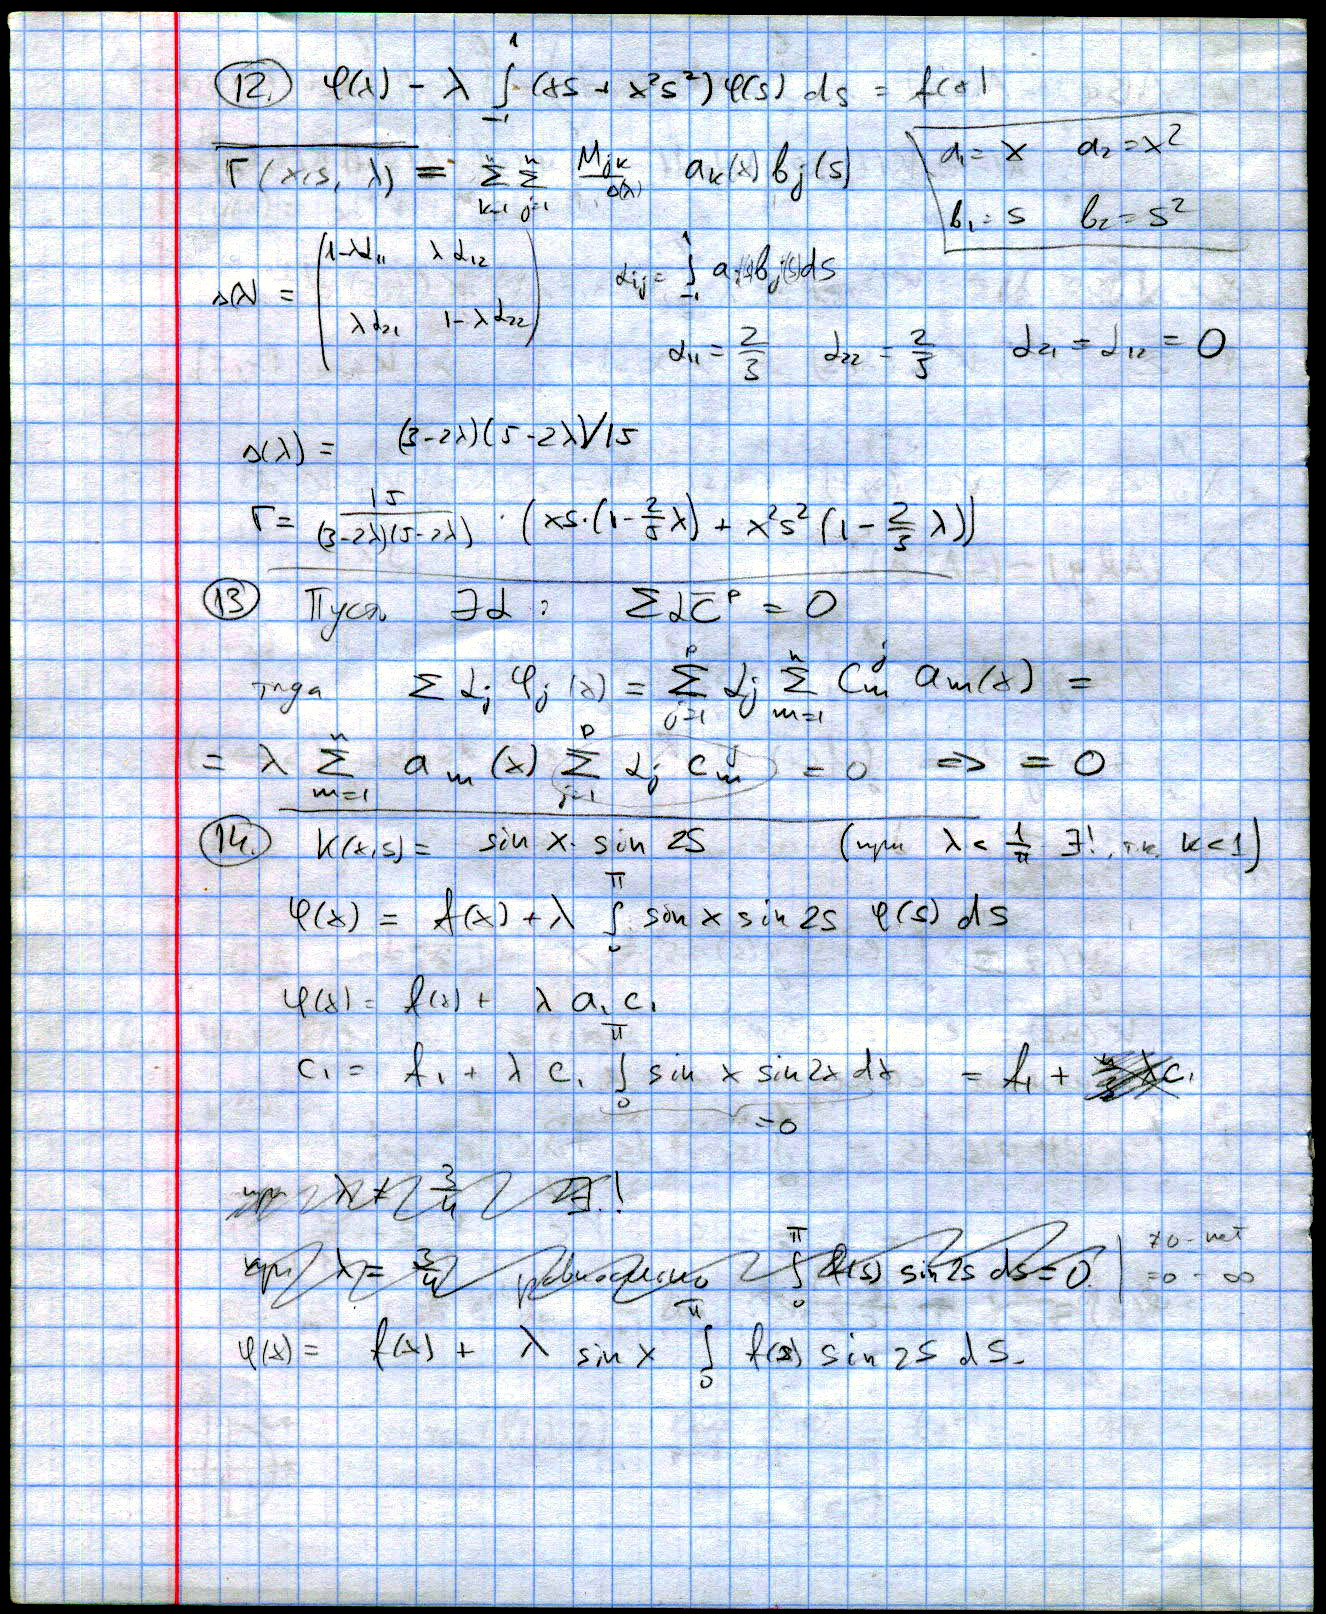 12. φ(x) − λ ∫₋₁¹ (xs + x²s²) φ(s) ds = f(x)
Γ(x,s,λ) = Σₖ₌₁ⁿ Σⱼ₌₁ⁿ Mⱼₖ/Δ(λ) aₖ(x) bⱼ(s)
a₁ = x a₂ = x²
b₁ = s b₂ = s²
Δ(λ) = ( 1−λα₁₁ λα₁₂
λα₂₁ 1−λα₂₂ )
αᵢⱼ = ∫₋₁¹ aᵢ(s) bⱼ(s) ds
α₁₁ = 2/3 α₂₂ = 2/5 α₂₁ = α₁₂ = 0
Δ(λ) = (3−2λ)(5−2λ)/15
Γ = 15/((3−2λ)(5−2λ)) · (xs·(1−2/5 λ) + x²s² (1 − 2/3 λ))
13 Пусть ∃α : Σ α C̄ᵖ = 0
тогда Σ αⱼ φⱼ(x) = Σⱼ₌₁ᵖ αⱼ Σₘ₌₁ⁿ Cₘʲ aₘ(x) =
= λ Σₘ₌₁ⁿ aₘ(x) Σⱼ₌₁ᵖ αⱼ cₘʲ = 0 ⇒ = 0
14. K(x,s) = sin x · sin 2s (при λ < 1/π ∃!, т.к. K<1)
φ(x) = f(x) + λ ∫₀^π sin x sin 2s φ(s) ds
φ(x) = f(x) + λ a₁ c₁
c₁ = f₁ + λ c₁ ∫₀^π sin x sin 2x dx = f₁ + λ c₁
= 0
при λ ≠ 3/4 ∃!
при λ = 3/4 равносильно ∫₀^π f(s) sin 2s ds = 0 | ≠0 - нет
=0 - ∞
φ(x) = f(x) + λ sin x ∫₀^π f(s) sin 2s ds.